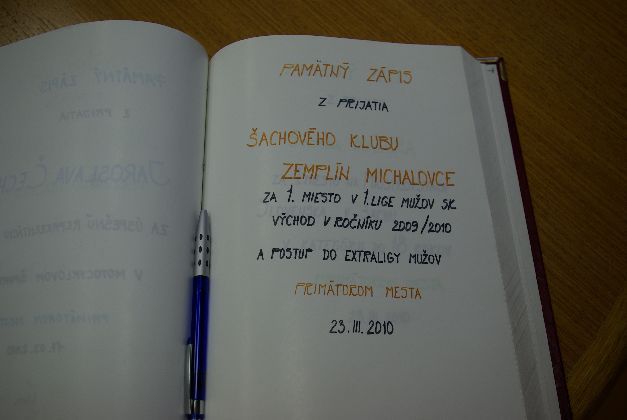 PAMÄTNÝ ZÁPIS
Z PRIJATIA
ŠACHOVÉHO KLUBU
ZEMPLÍN MICHALOVCE
ZA 1. MIESTO V 1. LIGE MUŽOV SR
VÝCHOD V ROČNÍKU 2009/2010
A POSTUP DO EXTRALIGY MUŽOV
PRIMÁTOROM MESTA
23. III. 2010
PAMÄTNÝ ZÁPIS
Z PRIJATIA
JAROSLAVA ČECH
ZA ÚSPEŠNÚ
V MOTOCYKLOVOM
PRIMÁTOROM